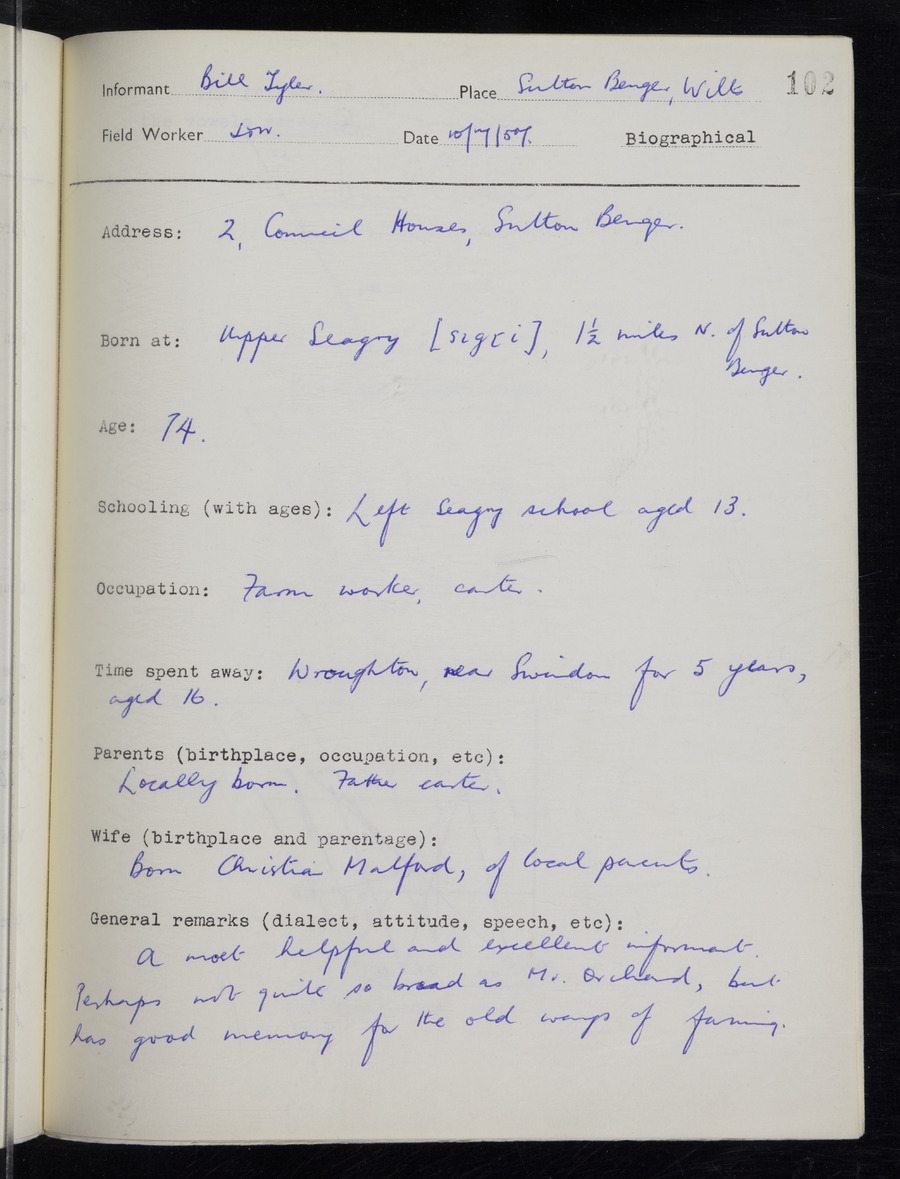 Informant Bill Tyler. Place Sutton Benger, Wilts 102
Field Worker Date 10/7/57. Biographical
Address: 2, Council Houses, Sutton Benger.
Born at: Upper Seagry, 1½ miles N. of Sutton
Benger.
Age: 74.
Schooling (with ages): Left Seagry school aged 13.
Occupation: Farm worker, carter.
Time spent away: Wroughton, near Swindon for 5 years,
aged 16.
Parents (birthplace, occupation, etc):
Locally born. Father carter.
Wife (birthplace and parentage):
Born Christian Malford, of local parents.
General remarks (dialect, attitude, speech, etc):
A most helpful and excellent informant.
Perhaps not quite so broad as Mr. Orchard, but
has good memory for the old ways of farming.